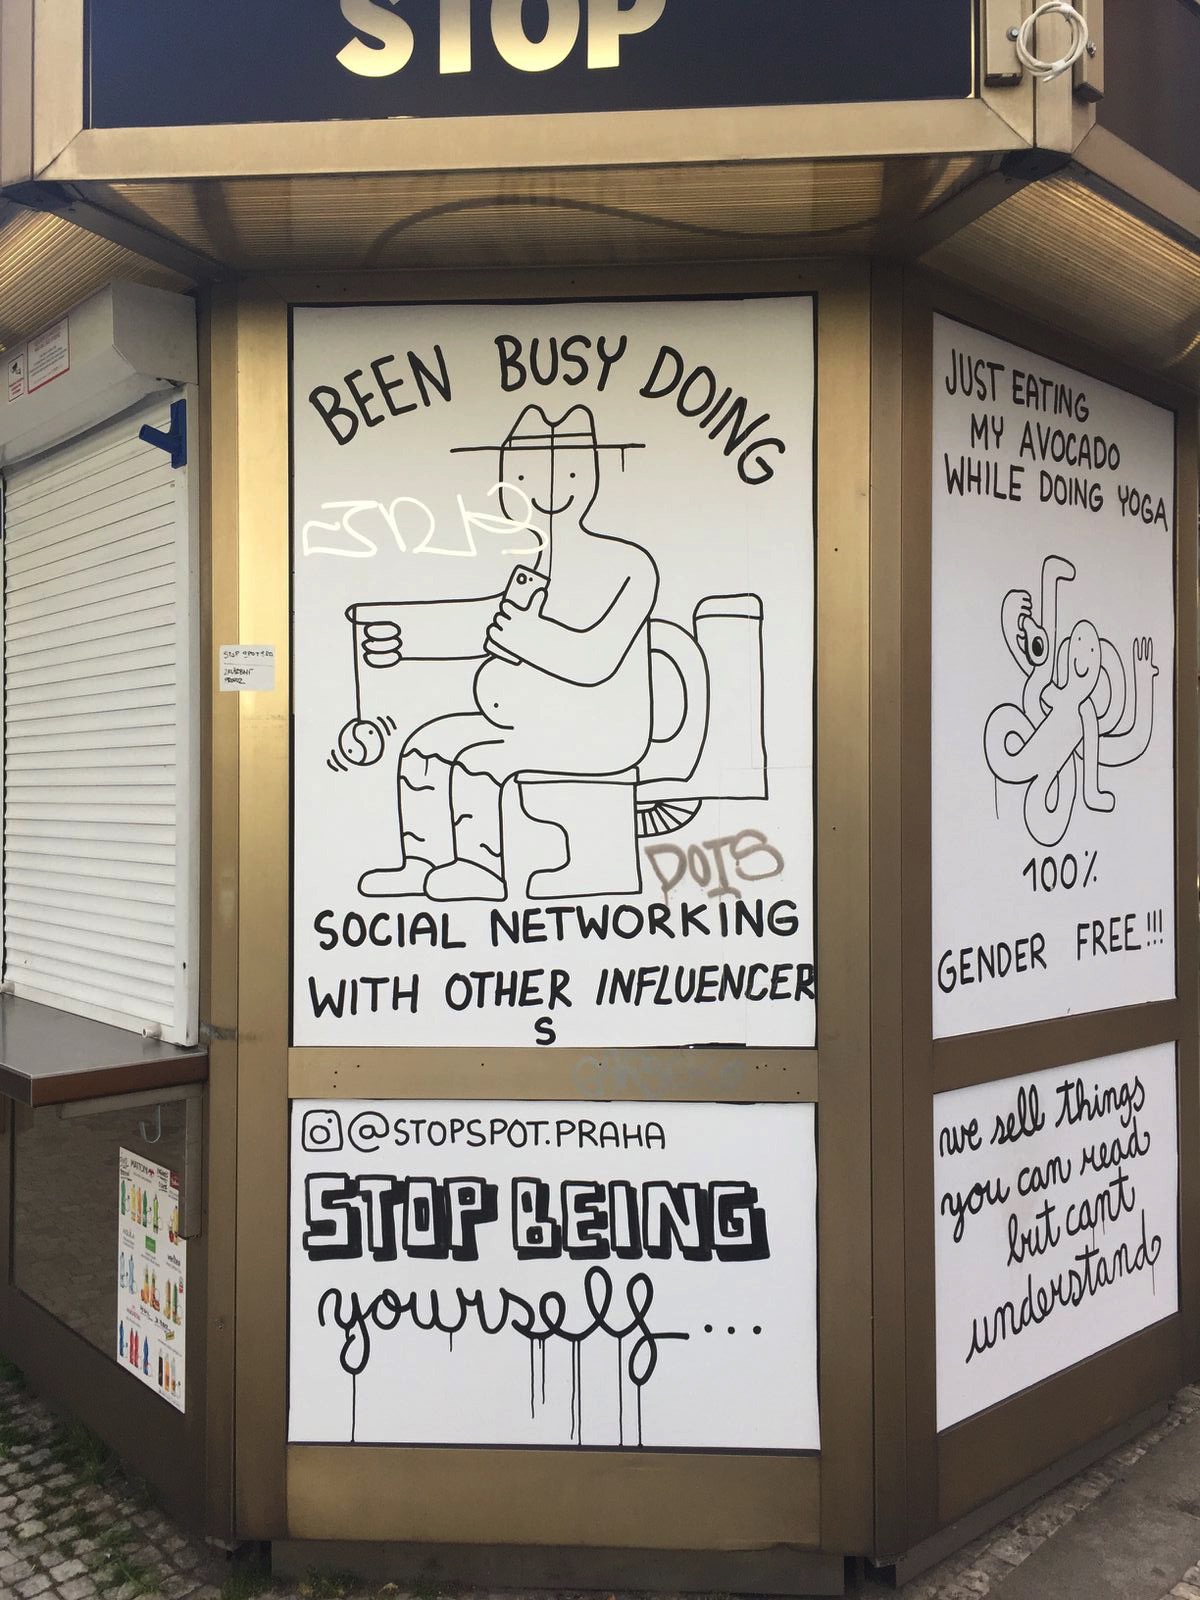 STOP
BEEN BUSY DOING
DOIS
SOCIAL NETWORKING
WITH OTHER INFLUENCER
S
@STOPSPOT.PRAHA
STOP BEING
yourself...
JUST EATING
MY AVOCADO
WHILE DOING YOGA
100%
GENDER FREE!!!
we sell things
you can read
but can't
understand